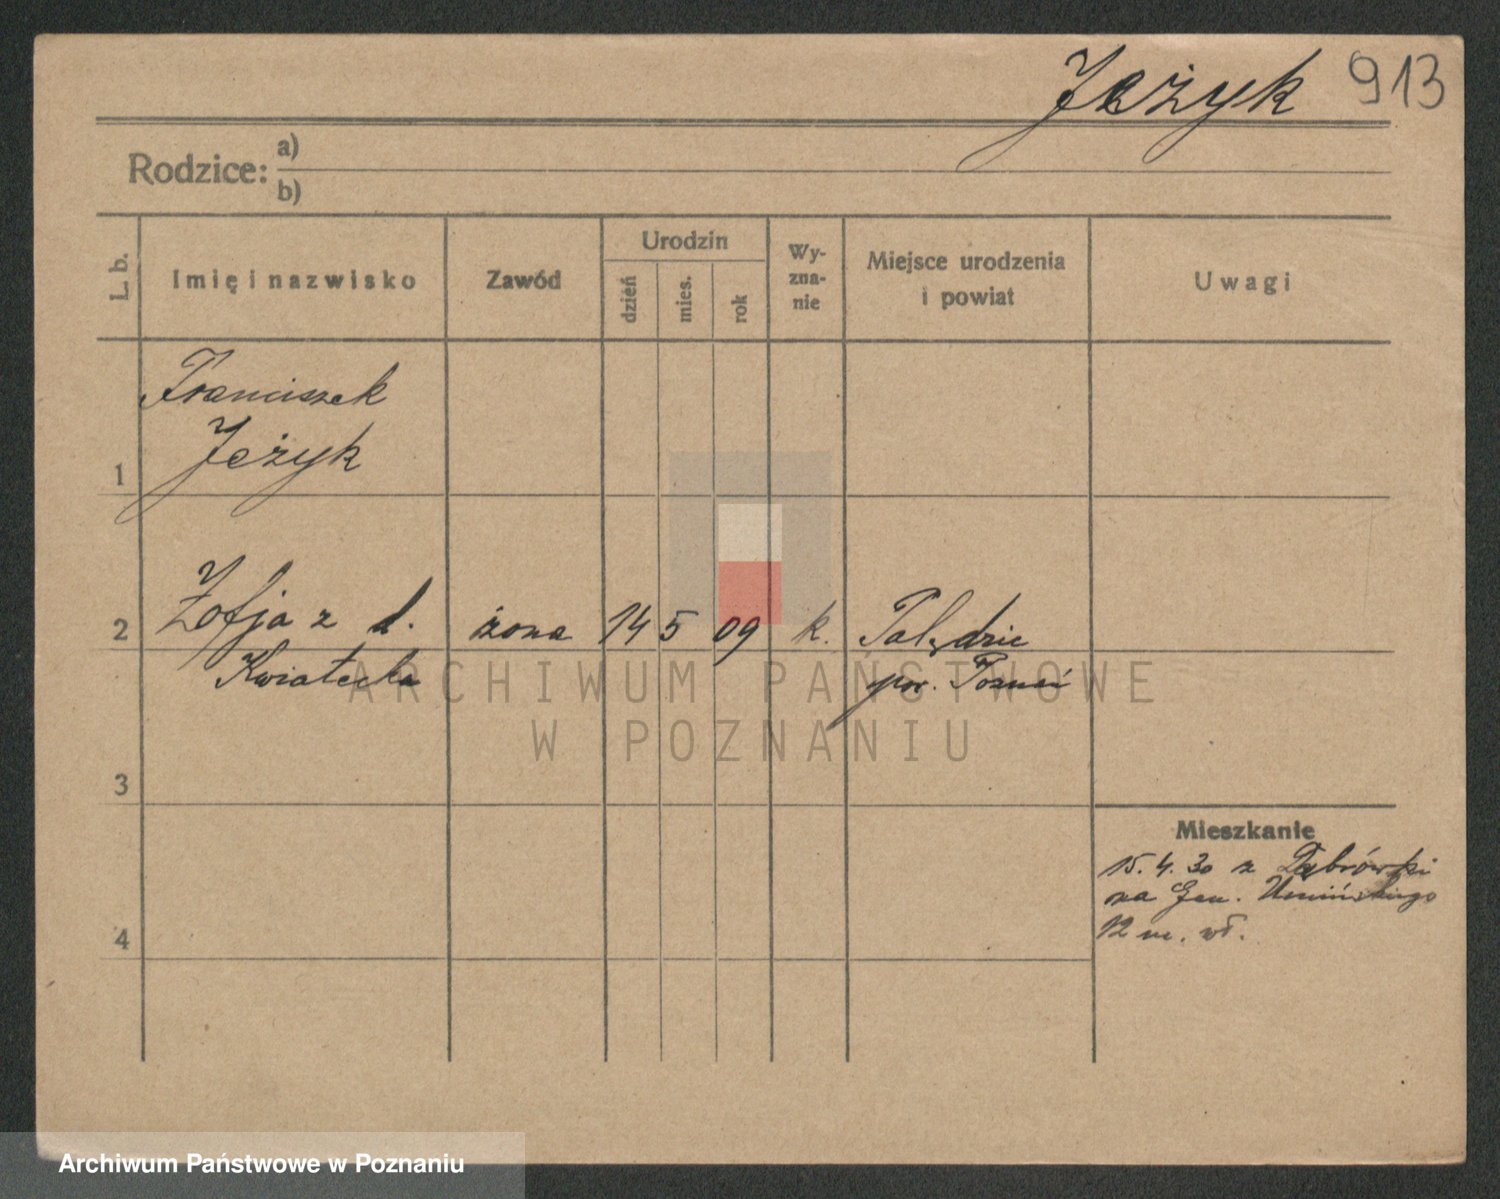 Jeżyk 913
Rodzice: a)
b)
L. b. Imię i nazwisko Zawód Urodzin dzień mies. rok Wy-zna-nie Miejsce urodzenia i powiat Uwagi
Franciszek
Jeżyk
1
2 Zofja z d. żona 14 5 09 k. Palędzie
Kwiatecka pow. Poznań
ARCHIWUM PAŃSTWOWE
W POZNANIU
3
Mieszkanie
15.4.30 z Dąbrówki
na Gen. Umińskiego
4 12 m. wł.
Archiwum Państwowe w Poznaniu